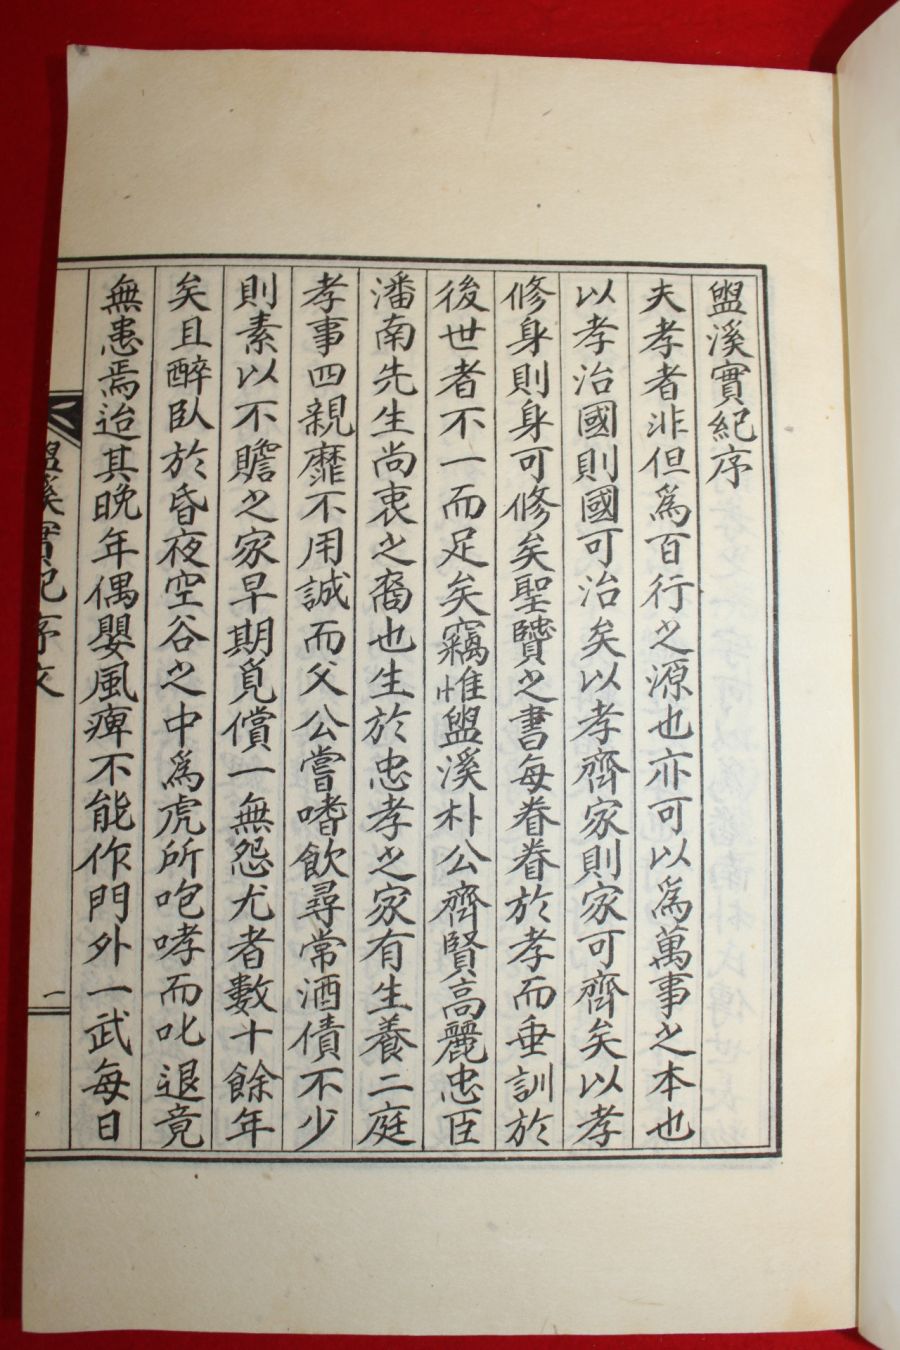 盥溪實紀序
夫孝者非但爲百行之源也亦可以爲萬事之本也
以孝治國則國可治矣以孝齊家則家可齊矣以孝
修身則身可修矣聖贒之書每眷眷於孝而垂訓於
後世者不一而足矣竊惟盥溪朴公齊賢高麗忠臣
潘南先生尚衷之裔也生於忠孝之家有生養二庭
孝事四親靡不用誠而父公嘗嗜飲尋常酒債不少
則素以不贍之家早期覓償一無怨尤者數十餘年
矣且醉臥於昏夜空谷之中爲虎所咆哮而叱退竟
無恙焉迨其晚年偶嬰風痺不能作門外一武每日
盥溪實紀序文
一